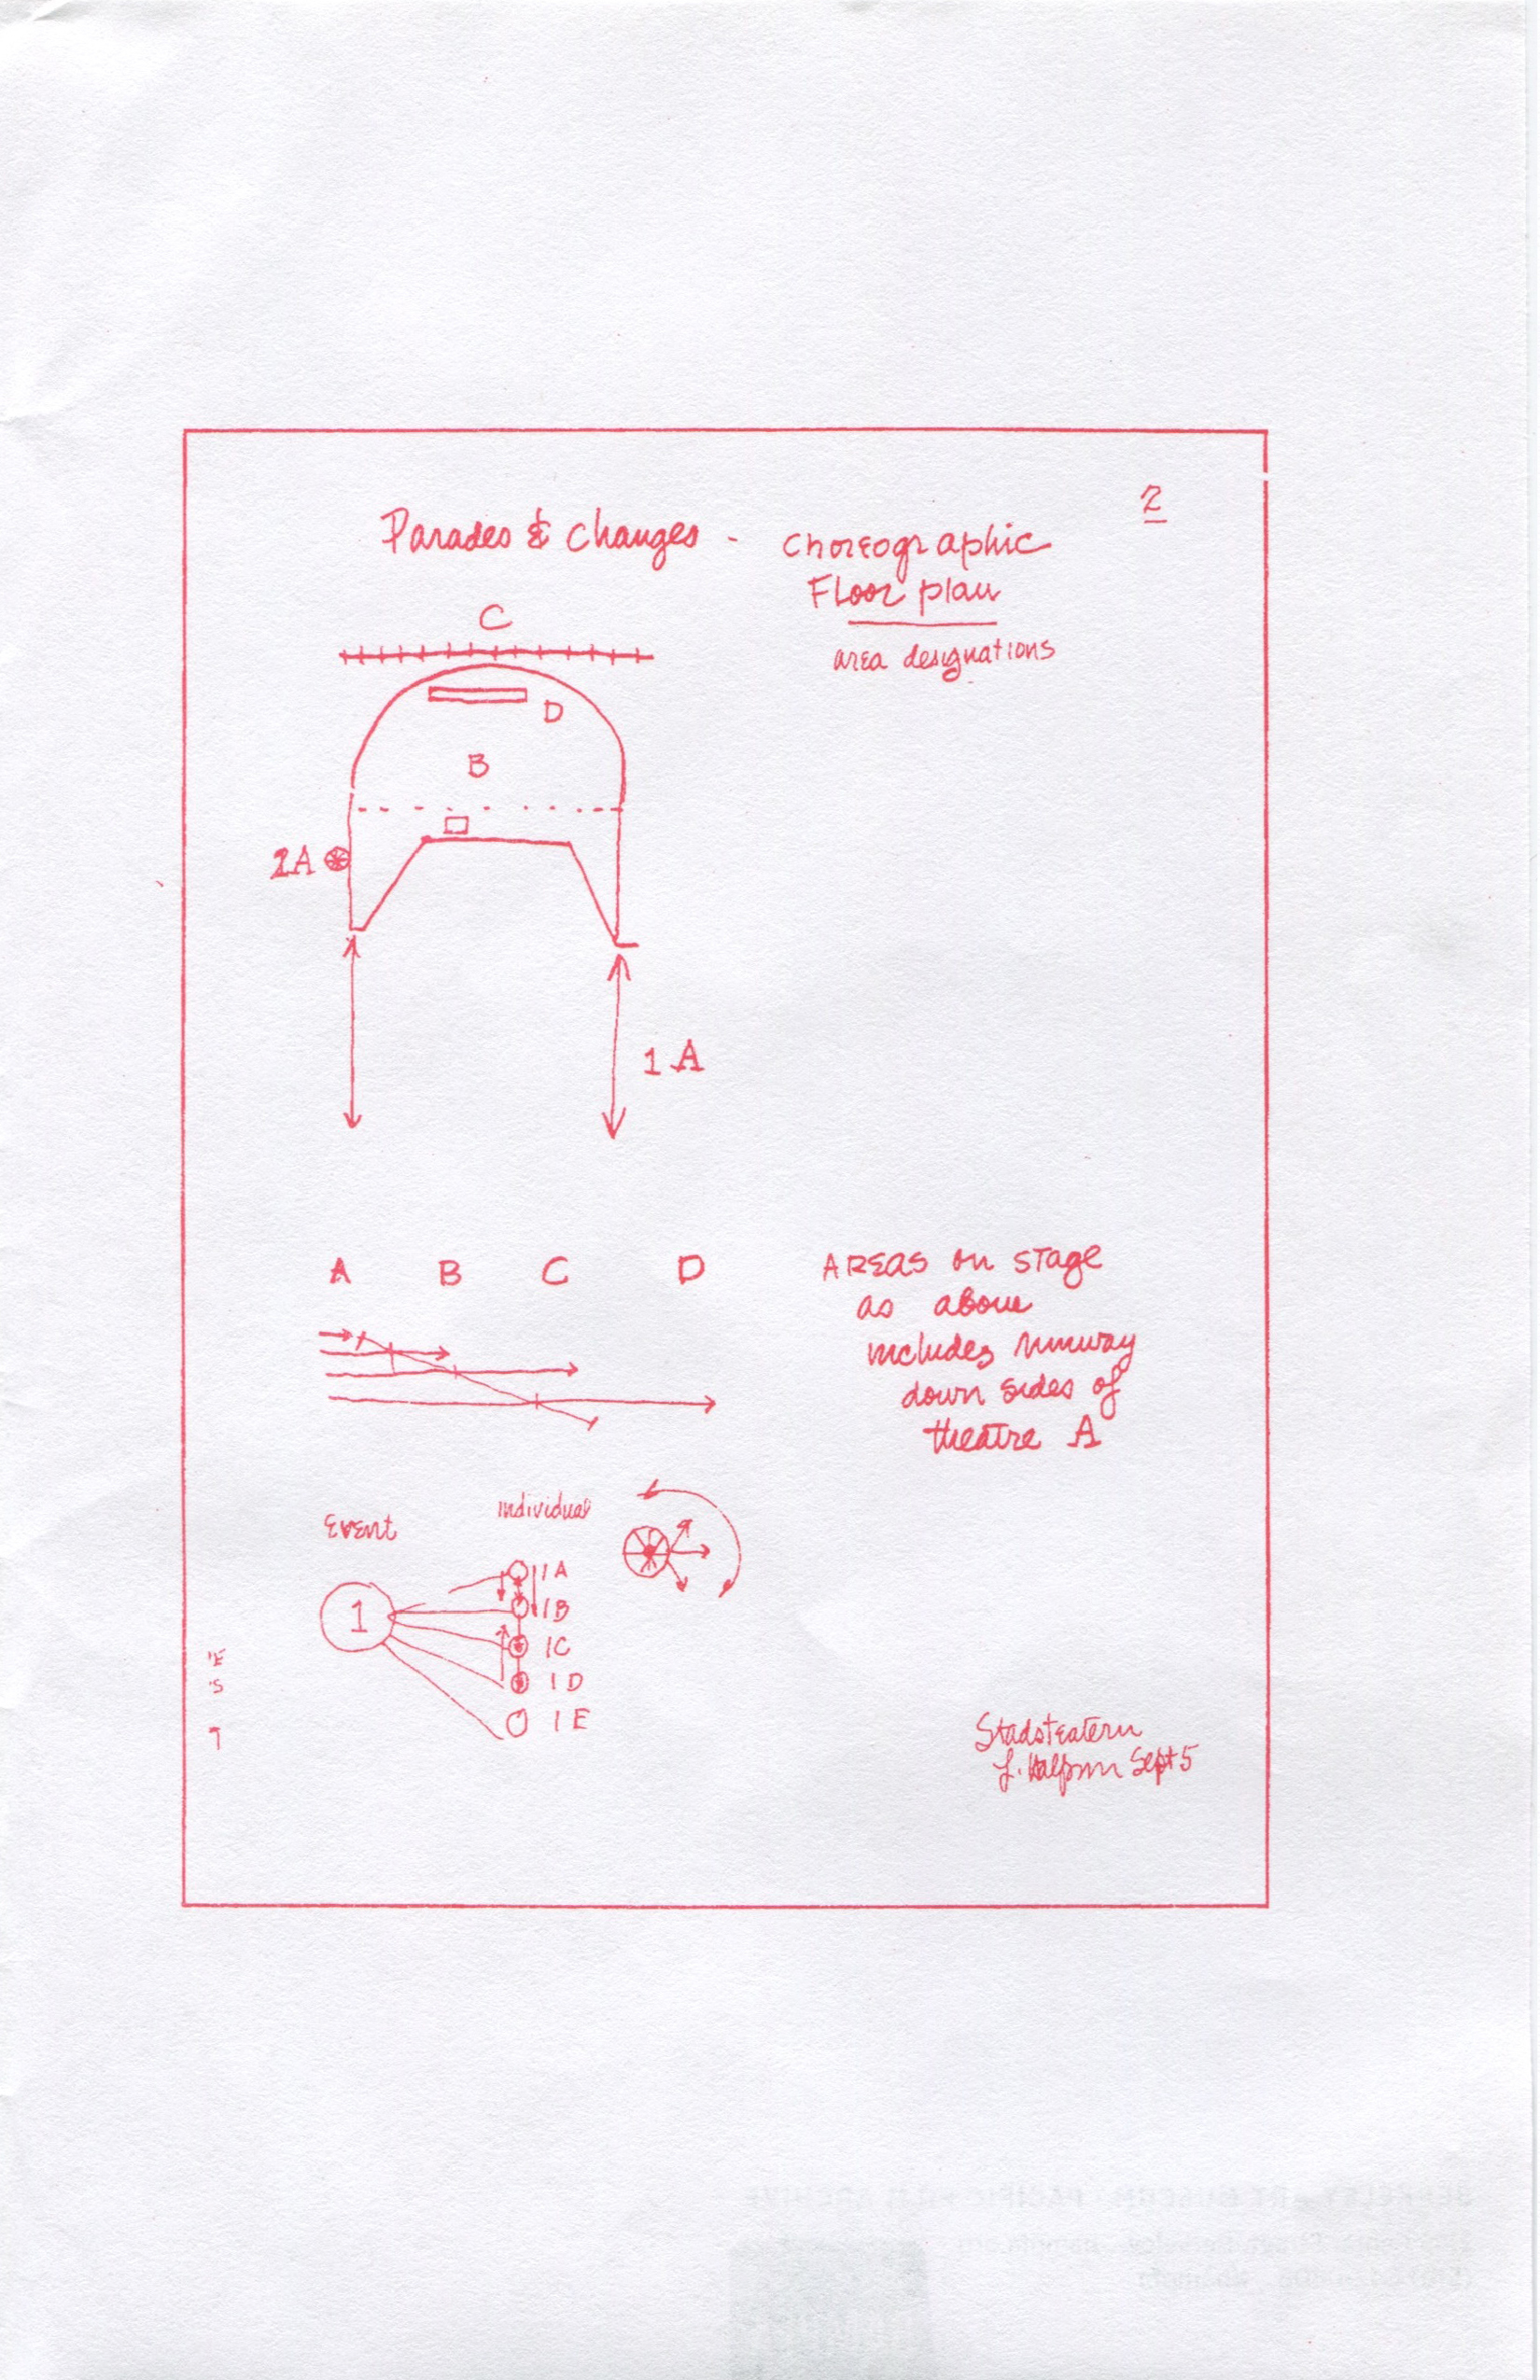 2
Parades & Changes - Choreographic
Floor plan
area designations
C
D
B
2A
1A
A B C D
AREAS on stage
as above
includes runway
down sides of
theatre A
Event
individual
1
1A
1B
1C
1D
1E
'E
'S
Stadsteatern
L. Halprin Sept 5
BERKELEY ART MUSEUM · PACIFIC FILM ARCHIVE